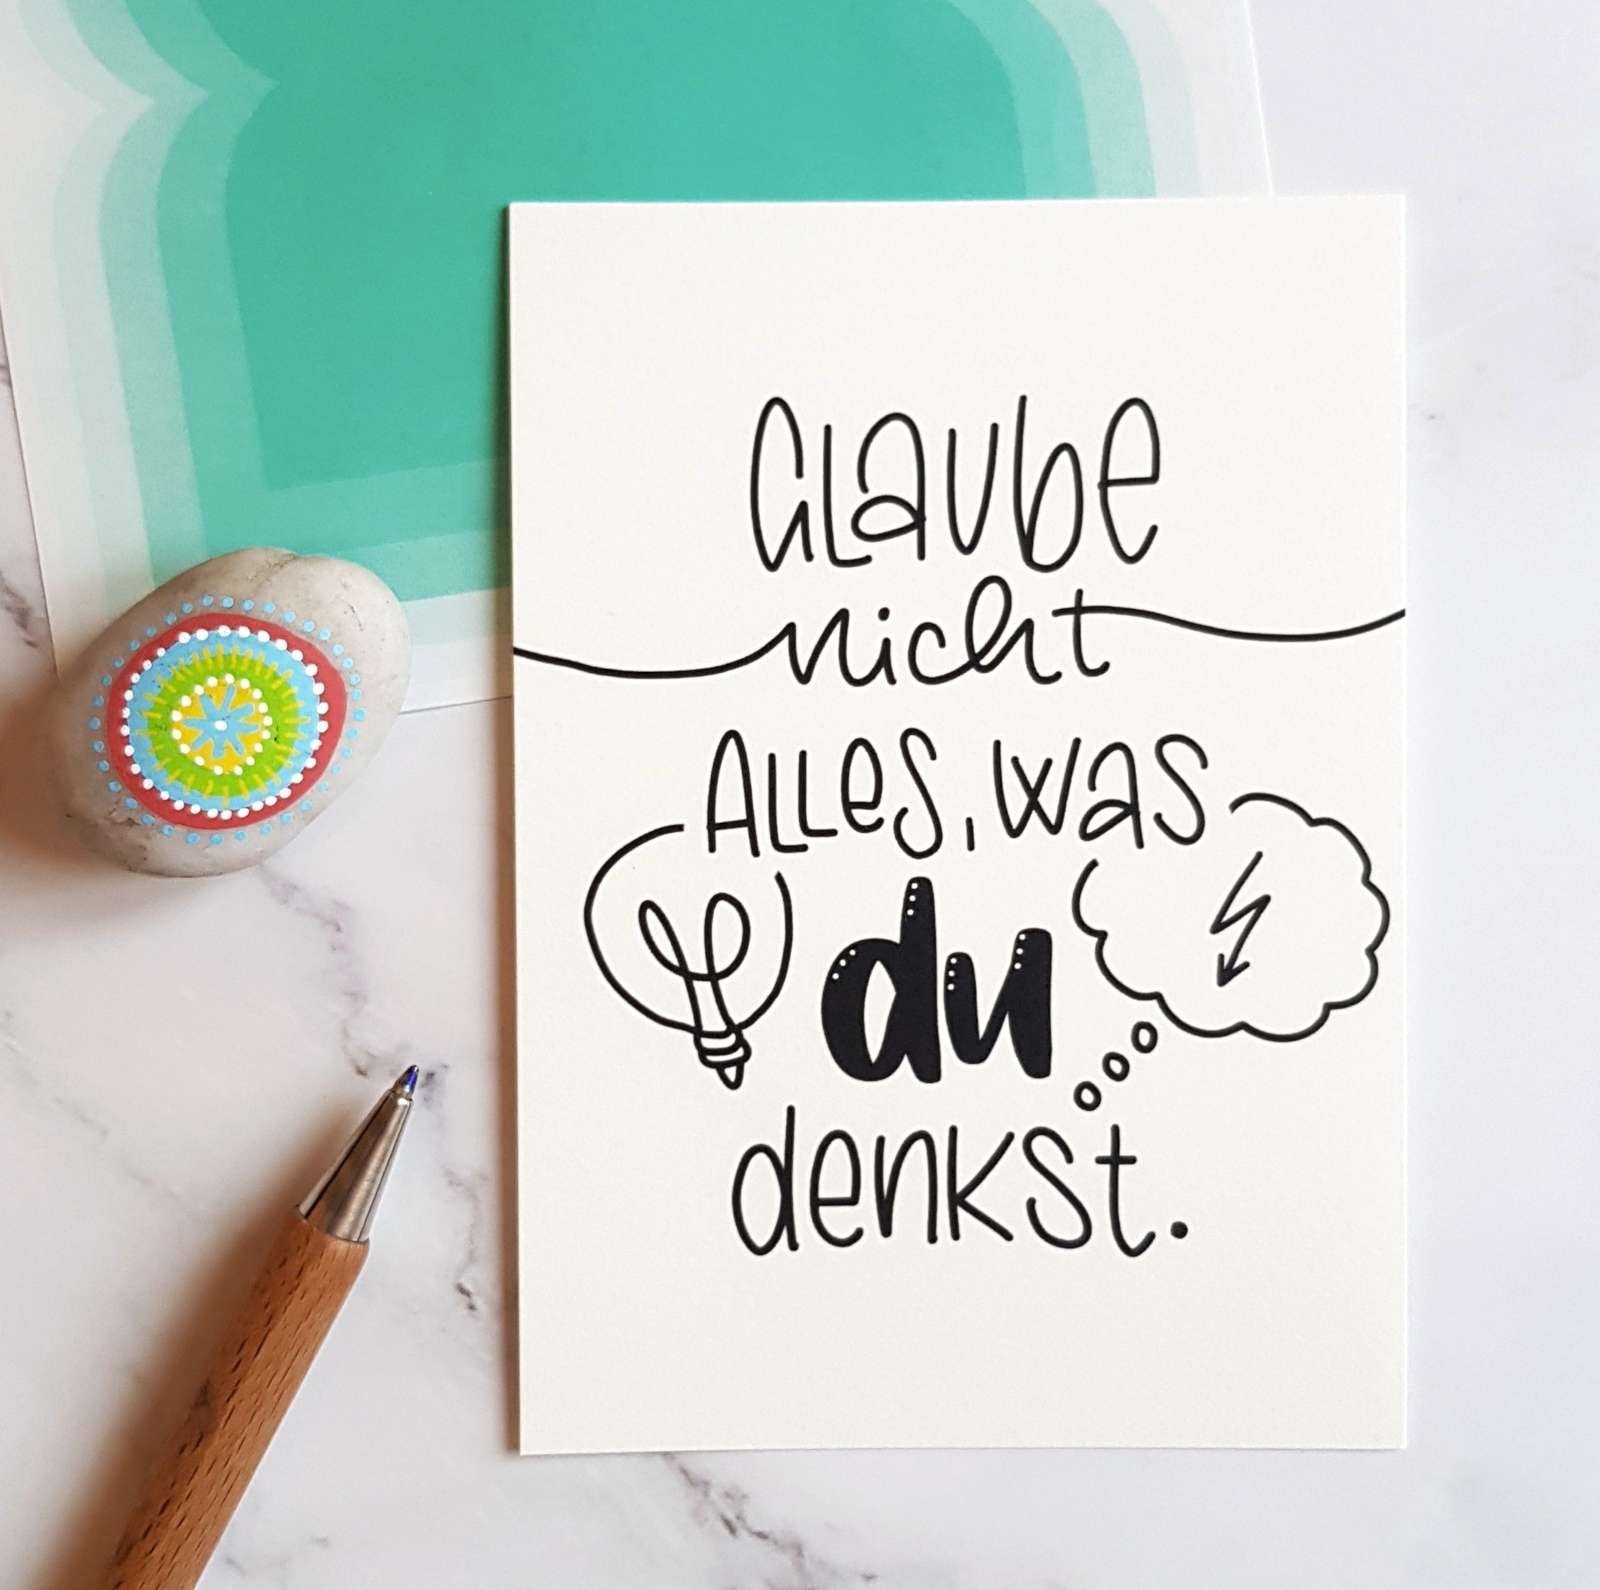 Glaube
nicht
Alles, was
du
denkst.